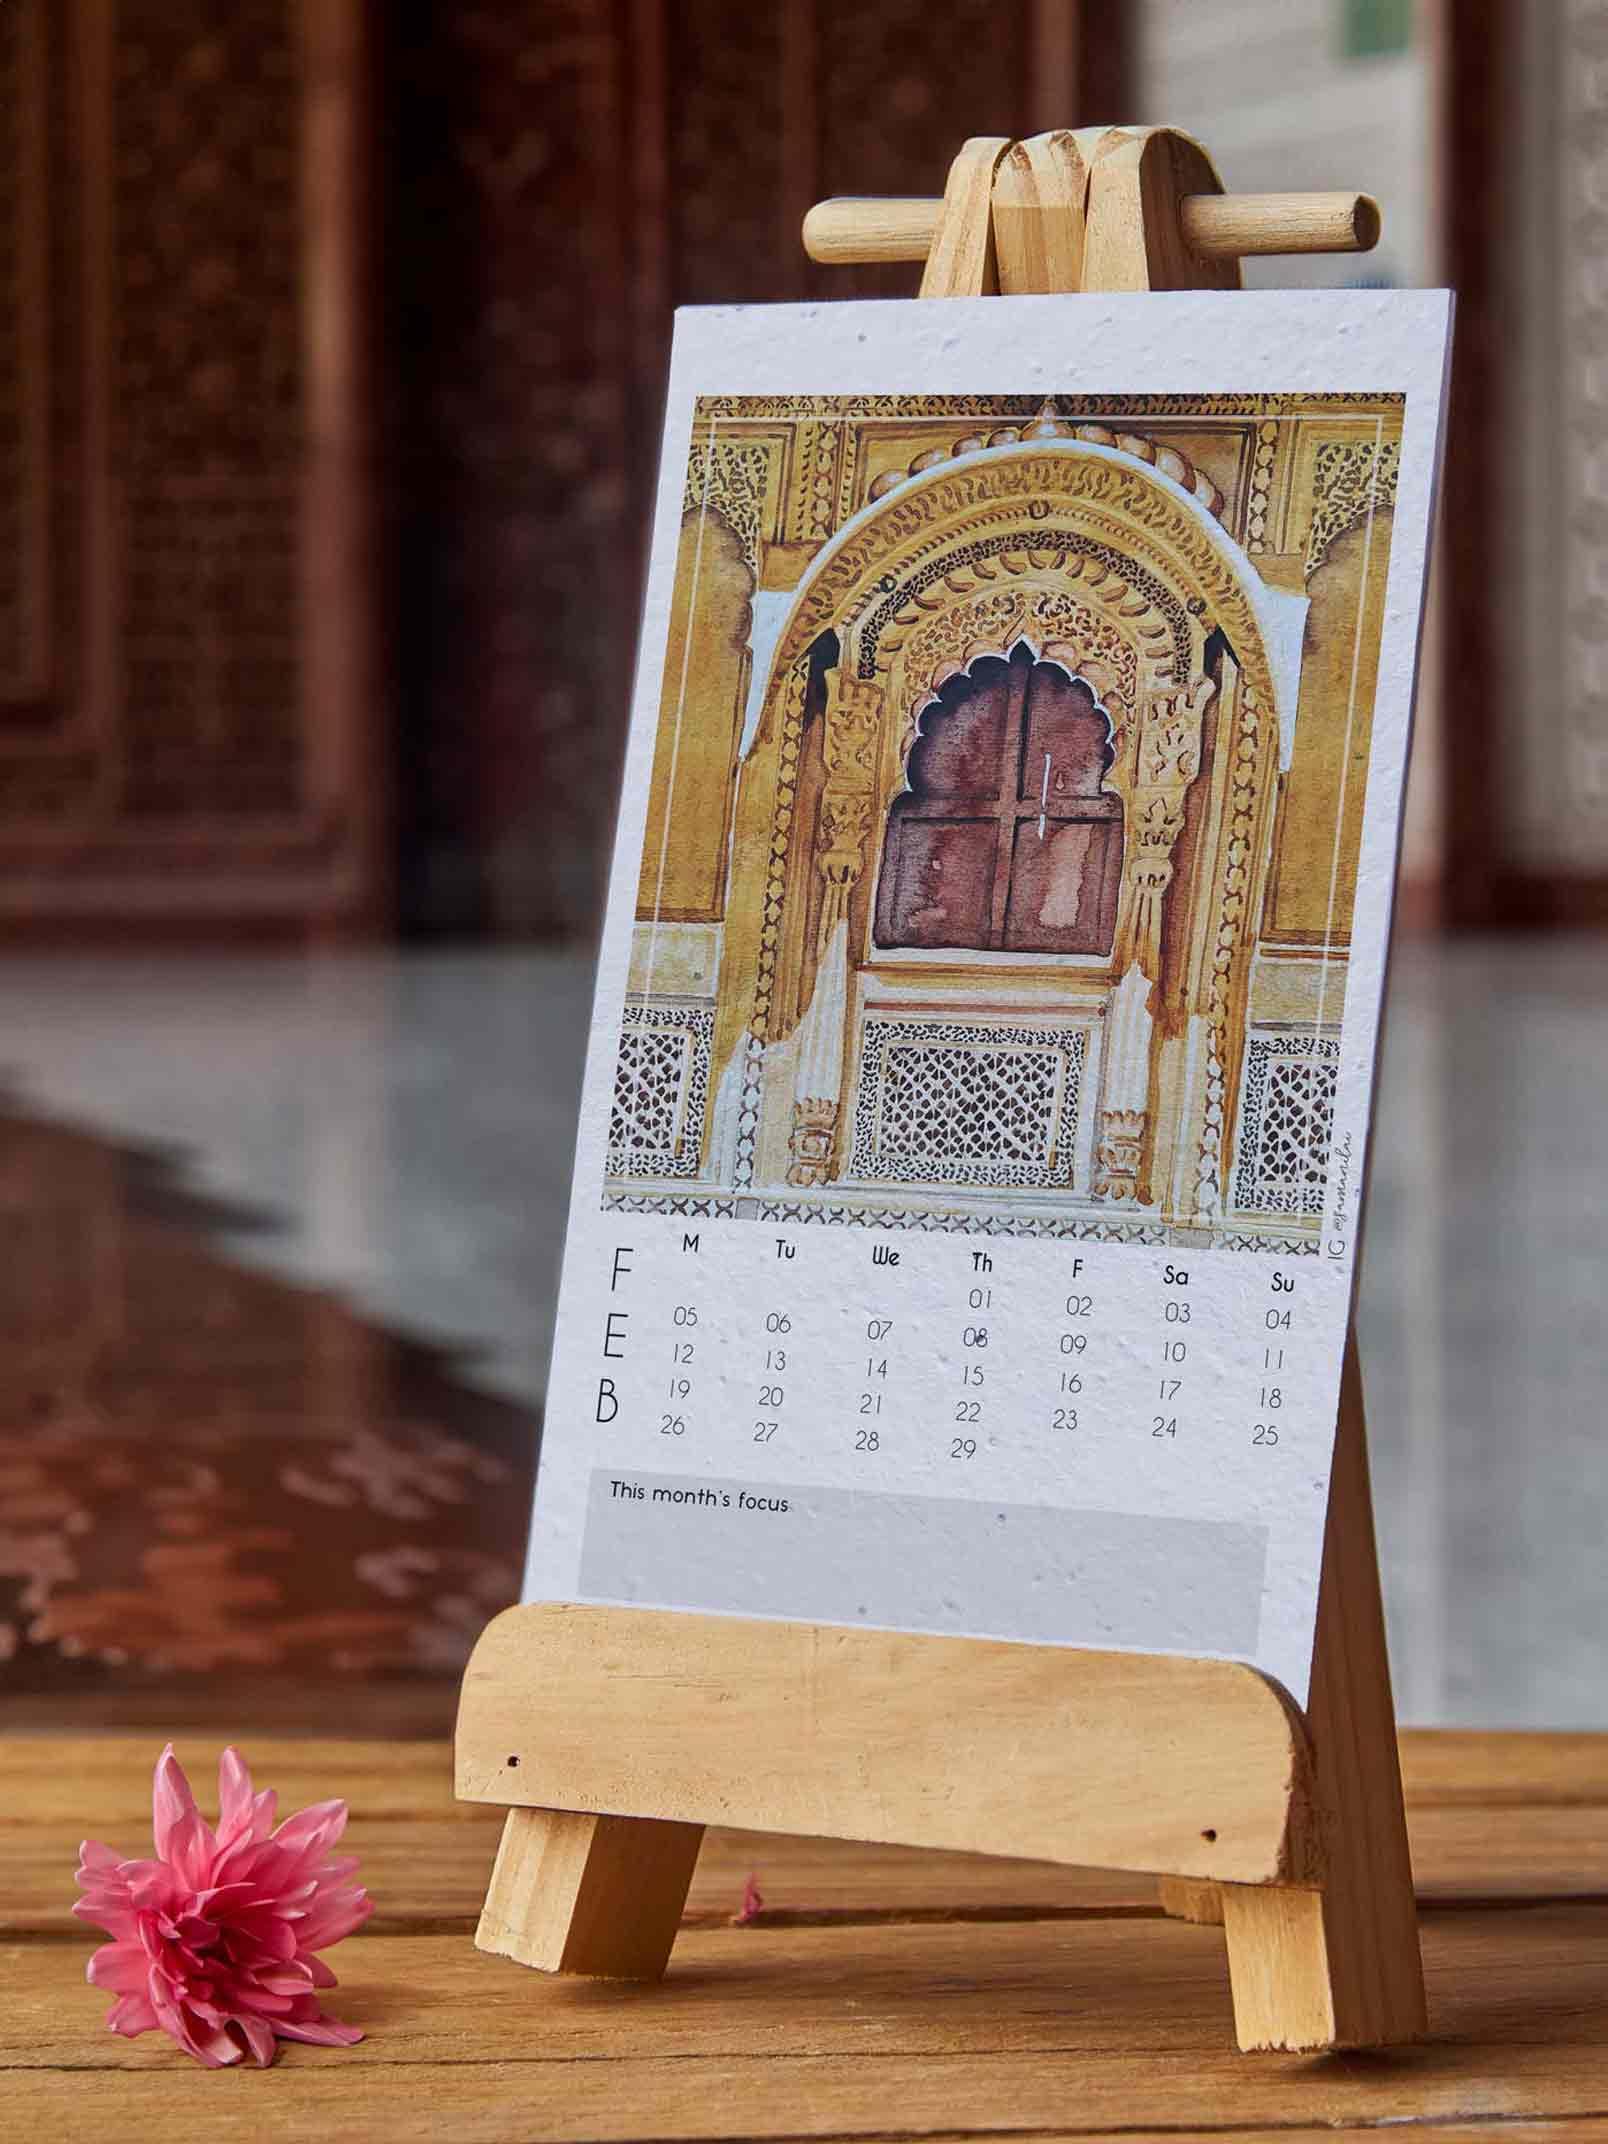 IG @samanilni
M Tu We Th F Sa Su
F
01 02 03 04
E
05 06 07 08 09 10 11
12 13 14 15 16 17 18
B
19 20 21 22 23 24 25
26 27 28 29
This month's focus